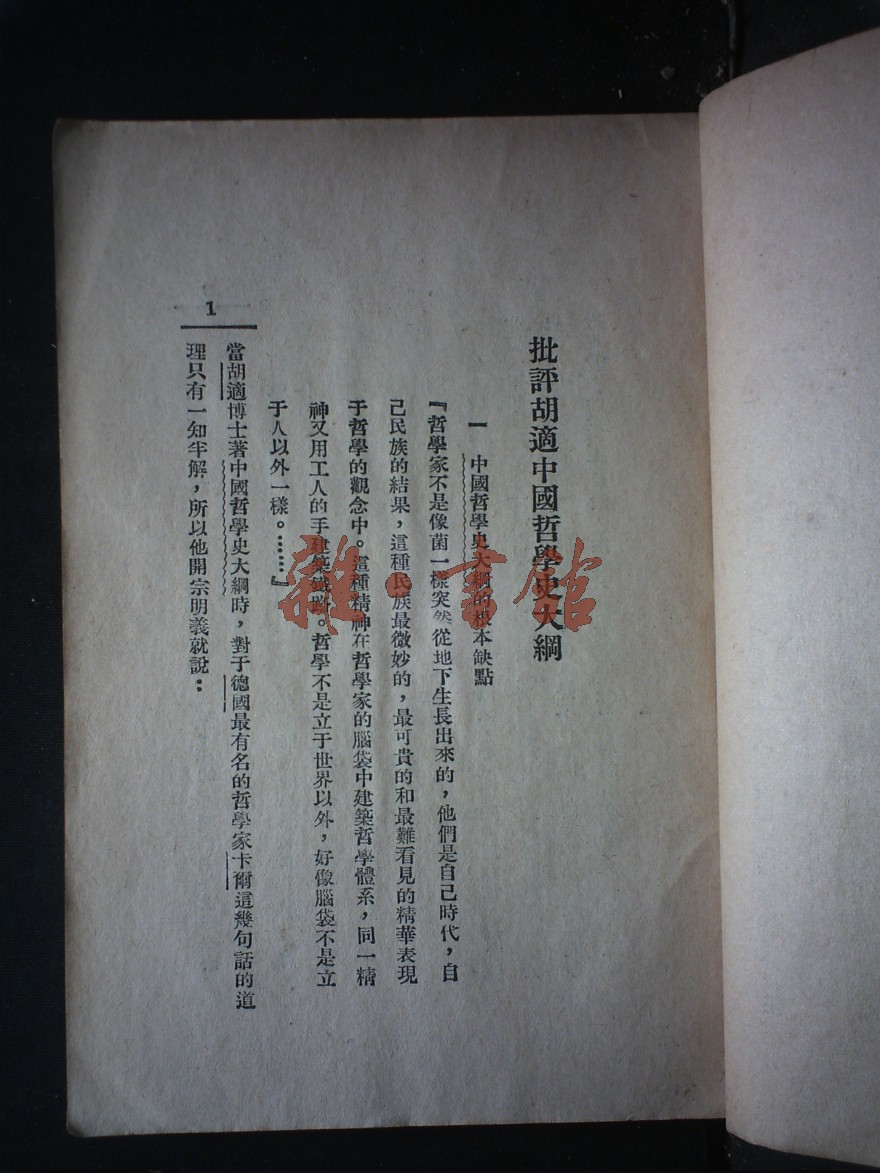 批評胡適中國哲學史大綱
一　中國哲學史大綱的根本缺點
『哲學家不是像菌一樣突然從地下生長出來的，他們是自己時代，自
己民族的結果，這種民族最微妙的，最可貴的和最難看見的精華表現
于哲學的觀念中。這種精神在哲學家的腦袋中建築哲學體系，同一精
神又用工人的手建築鐵路。哲學不是立于世界以外，好像腦袋不是立
于人以外一樣。……』
當胡適博士著中國哲學史大綱時，對于德國最有名的哲學家卡爾這幾句話的道
理只有一知半解，所以他開宗明義就說：
1
雜·書館